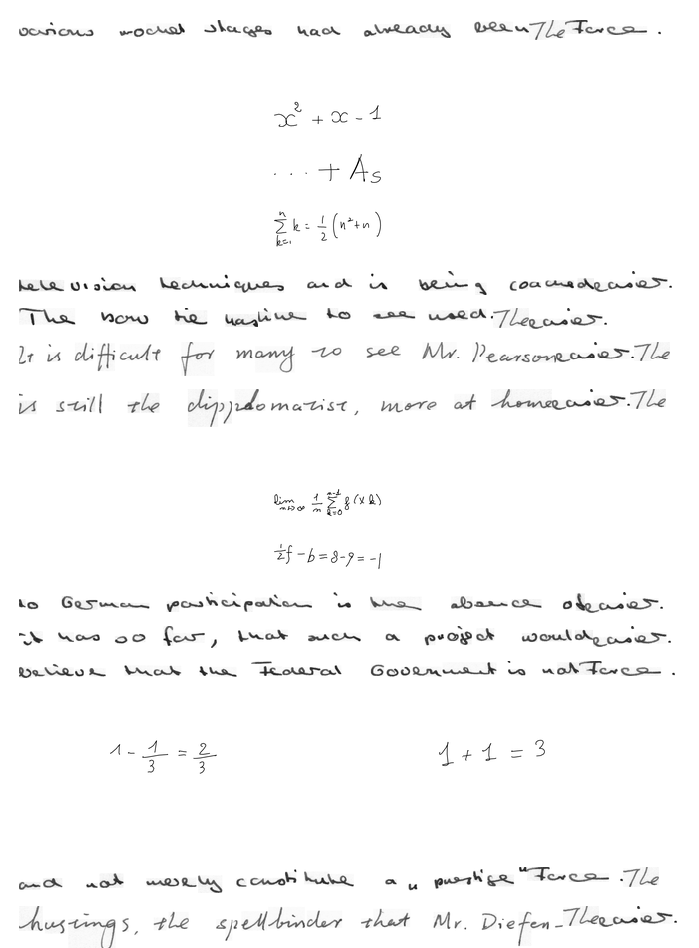 various rocket stages had already been The Force .
x² + x - 1
... + A₅
∑_{k=1}^{n} k = 1/2 (n² + n)
television techniques and is being coached easier.
The bow tie has to see used. The easier.
It is difficult for many to see Mr. Pearson easier. The
is still the dippdomatist, more at home easier. The
lim_{n→∞} 1/n ∑_{k=0}^{n-1} f(x k)
1/2 f - b = 8 - 9 = -1
to German participation is the absence of easier.
it has so far, that such a project would easier.
believe that the Federal Government is not Force .
1 - 1/3 = 2/3
1 + 1 = 3
and not merely constitute a " prestige " Force . The
hustings, the spellbinder that Mr. Diefen- The easier.